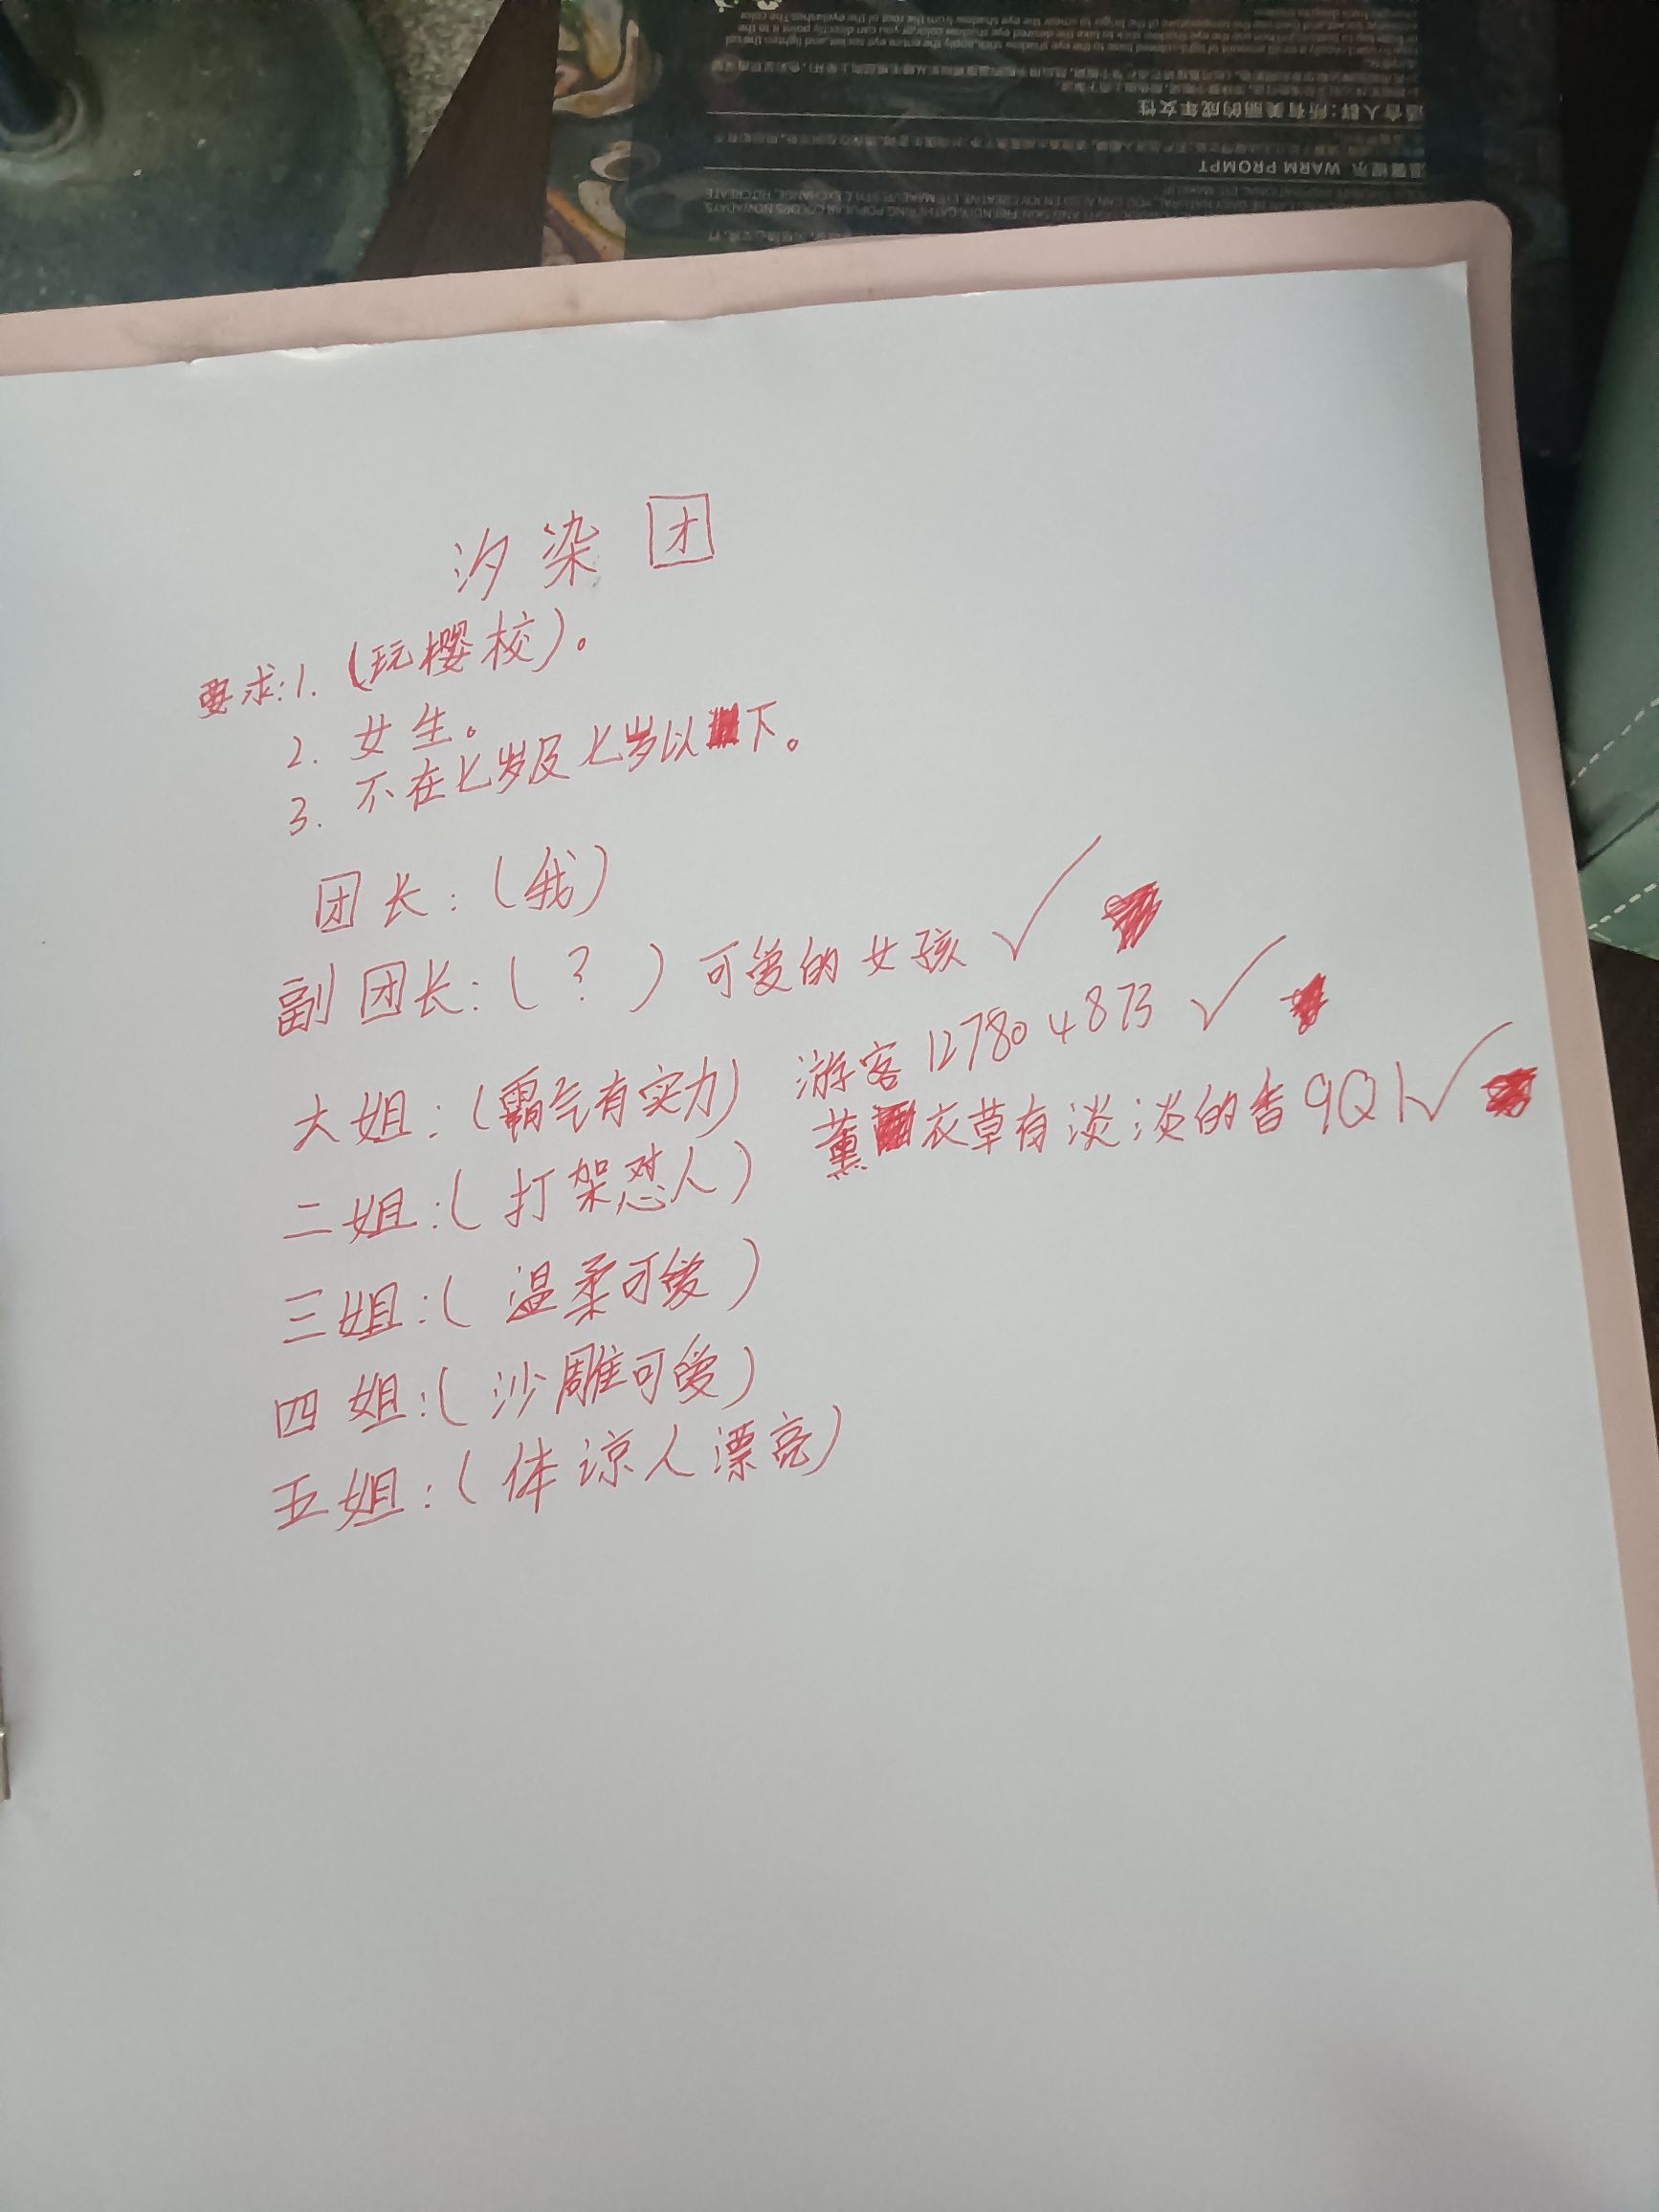 汐染团
要求:1.(玩樱校)。
2. 女生。
3. 不在七岁及七岁以下。
团长:(我)
副团长:(?)可爱的女孩✓
大姐:(霸气有实力) 游客127804873✓
二姐:(打架怼人) 薰衣草有淡淡的香9Q1✓
三姐:(温柔可爱)
四姐:(沙雕可爱)
五姐:(体谅人漂亮)
适合人群:所有美丽的成年女性
温馨提示 WARM PROMPT